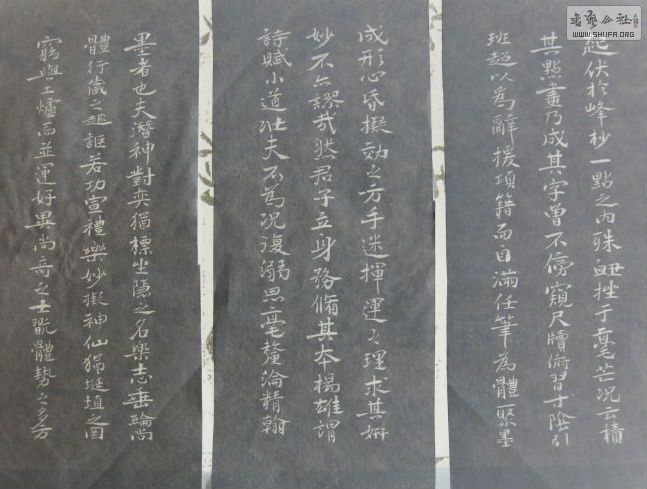 起伏於峰杪一點之內殊衄挫于毫芒况云積
其點畫乃成其字曾不傍窺尺牘俯習寸陰引
班超以為辭援項籍而自滿任筆為體聚墨
成形心昏擬効之方手迷揮運之理求其妍
妙不亦謬哉然君子立身務脩其本楊雄謂
詩賦小道壯夫不為况復溺思毫釐淪精翰
墨者也夫潛神對奕猶標坐隱之名樂志垂綸尚
體行藏之趣詎若功宣禮樂妙擬神仙猶埏埴之罔
窮與工爐而並運好異尚奇之士翫體勢之多方
書藝公社
WWW.SHUFA.ORG